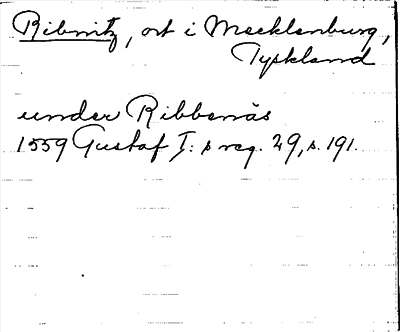 Ribnitz, ort i Mecklenburg,
Tyskland
under Ribbenäs
1559 Gustaf I: s reg. 29, s. 191.